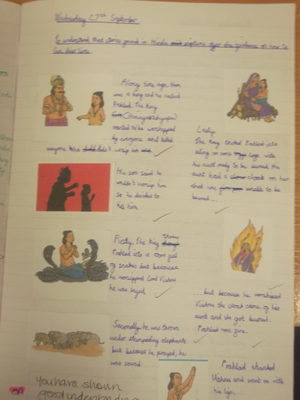 Wednesday 27th September
To understand that stories found in Hindu scriptures offer guidance on how to live their lives
Along time ago, there
was a king and he called
Prahlad. The King
wanted to be worshipped
by everyone and killed
anyone who didn't worship him
His son said he
wouldn't worship him
so he decided to
kill him
Firstly, the King threw
Prahlad into a room full
of snakes but because
he worshipped Lord Vishnu
he was saved
Secondly he was thrown
under stampeding elephants
but because he prayed, he
was saved
Lastly
The King tricked Prahlad into
sitting on some logs with
his aunt ready to be burned. His
aunt had a cloak on her
that was unable to be
burned...
...but because he worshipped
Vishnu the cloak came off his
aunt and she got burned.
Prahlad was fine.
Prahlad thanked
Vishnu and went on with
his life.
You have shown
good understanding